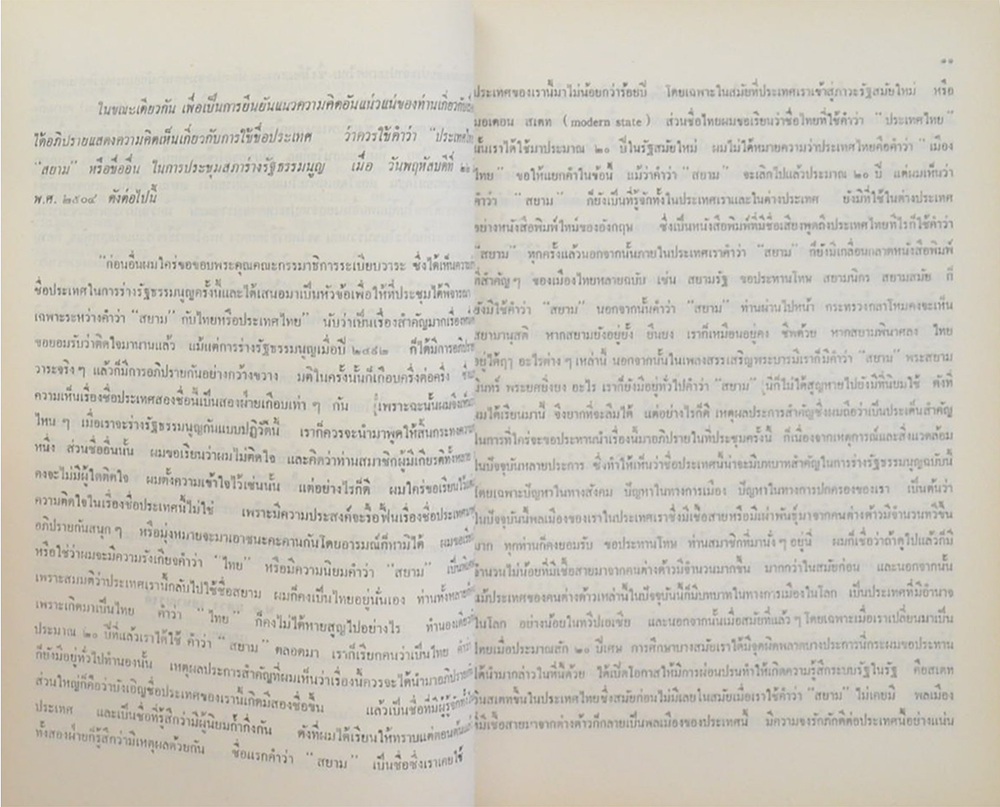 ในขณะเดียวกัน เพื่อเป็นการยืนยันแนวความคิดอันแน่วแน่ของท่านเกี่ยวกับ
ได้อภิปรายแสดงความคิดเห็นเกี่ยวกับการใช้ชื่อประเทศ ว่าควรใช้คำว่า “ประเทศไทย
“สยาม” หรือชื่ออื่น ในการประชุมสภาร่างรัฐธรรมนูญ เมื่อ วันพฤหัสบดีที่
พ.ศ. ๒๕๐๔ ดังต่อไปนี้
“ก่อนอื่นผมใคร่ขอขอบพระคุณคณะกรรมาธิการระเบียบวาระ ซึ่งได้เห็นความ
ชื่อประเทศในการร่างรัฐธรรมนูญครั้งนี้และได้เสนอมาเป็นหัวข้อเพื่อให้ที่ประชุมได้พิจารณา
เฉพาะระหว่างคำว่า “สยาม” กับไทยหรือประเทศไทย” นับว่าเป็นเรื่องสำคัญมากเรื่อง
ขอยอมรับว่าติดใจมานานแล้ว แม้แต่การร่างรัฐธรรมนูญเมื่อปี ๒๔๙๒ ก็ได้มีการอภิปราย
วาระจริงๆ แล้วก็มีการอภิปรายกันอย่างกว้างขวาง มติในครั้งนั้นก็เกือบครึ่งต่อครึ่ง
ความเห็นเรื่องชื่อประเทศสองชื่อนี้เป็นสองฝ่ายเกือบเท่าๆ กัน เพราะฉะนั้นผมจึงเห็น
ไหนๆ เมื่อเราจะร่างรัฐธรรมนูญกันแบบปฏิวัตินี้ เราก็ควรจะนำมาพูดให้สิ้นกระทงความ
หนึ่ง ส่วนชื่ออื่นนั้น ผมขอเรียนว่าผมไม่ติดใจ และคิดว่าท่านสมาชิกผู้มีเกียรติทั้งหลาย
คงจะไม่มีผู้ใดติดใจ ผมตั้งความเข้าใจไว้เช่นนั้น แต่อย่างไรก็ดี ผมใคร่ขอเรียนไว้
ความติดใจในเรื่องชื่อประเทศนี้ไม่ใช่ เพราะมีความประสงค์จะรื้อฟื้นเรื่องชื่อประเทศ
อภิปรายกันสนุกๆ หรือมุ่งหมายจะมาเอาชนะคะคานกันโดยอารมณ์ก็หามิได้ ผมขอเรียน
หรือใช่ว่าผมจะมีความรังเกียจคำว่า “ไทย” หรือมีความนิยมคำว่า “สยาม” เป็นพิเศษ
เพราะสมมติว่าประเทศเรานี้กลับไปใช้ชื่อสยาม ผมก็คงเป็นไทยอยู่นั่นเอง ท่านทั้งหลายก็
เพราะเกิดมาเป็นไทย คำว่า “ไทย” ก็คงไม่ได้หายสูญไปอย่างไร ทำนองเดียวกับ
ประมาณ ๒๐ ปีที่แล้วเราได้ใช้ คำว่า “สยาม” ตลอดมา เราก็เรียกคนว่าเป็นไทย คำว่า
ก็ยังมีอยู่ทั่วไปทำนองนั้น เหตุผลประการสำคัญที่ผมเห็นว่าเรื่องนี้ควรจะได้นำมาอภิปราย
ส่วนใหญ่ก็คือว่าบังเอิญชื่อประเทศของเรานั้นเกิดมีสองชื่อขึ้น แล้วเป็นชื่อที่มีผู้รู้จัก
ประเทศ และเป็นชื่อที่รู้สึกว่ามีผู้นิยมก้ำกึ่งกัน ดังที่ผมได้เรียนให้ทราบแต่ตอนต้นแล้ว
ทั้งสองฝ่ายก็รู้สึกว่ามีเหตุผลด้วยกัน ชื่อแรกคำว่า “สยาม” เป็นชื่อซึ่งเราเคยใช้
๑๑
ประเทศของเรานี้มาไม่น้อยกว่าร้อยปี โดยเฉพาะในสมัยที่ประเทศเราเข้าสู่ภาวะรัฐสมัยใหม่ หรือ
มอเดอน สเตท (modern state) ส่วนชื่อไทยผมขอเรียนว่าชื่อไทยที่ใช้คำว่า “ประเทศไทย”
นั้นเราได้ใช้มาประมาณ ๒๐ ปีในรัฐสมัยใหม่ ผมไม่ได้หมายความว่าประเทศไทยคือคำว่า “เมือง
ไทย” ขอให้แยกคำในข้อนี้ แม้ว่าคำว่า “สยาม” จะเลิกไปแล้วประมาณ ๒๐ ปี แต่ผมเห็นว่า
คำว่า “สยาม” ก็ยังเป็นที่รู้จักทั้งในประเทศเราและในต่างประเทศ ยังมีที่ใช้ในต่างประเทศ
อย่างหนังสือพิมพ์ไทม์ของอังกฤษ ซึ่งเป็นหนังสือพิมพ์ที่มีชื่อเสียงพูดถึงประเทศไทยทีไรก็ใช้คำว่า
“สยาม” ทุกครั้งแล้วนอกจากนั้นภายในประเทศเราคำว่า “สยาม” ก็ยังมีเกลื่อนกลาดหนังสือพิมพ์
ที่สำคัญๆ ของเมืองไทยหลายฉบับ เช่น สยามรัฐ ขอประทานโทษ สยามนิกร สยามสมัย ก็
ยังมีใช้คำว่า “สยาม” นอกจากนั้นคำว่า “สยาม” ท่านผ่านไปหน้า กระทรวงกลาโหมคงจะเห็น
สยามานุสติ หากสยามยังอยู่ยั้ง ยืนยง เราก็เหมือนอยู่คง ชีพด้วย หากสยามพินาศลง ไทย
อยู่ได้ฤๅ อะไรต่างๆ เหล่านี้ นอกจากนั้นในเพลงสรรเสริญพระบารมีเราก็มีคำว่า “สยาม” พระสยาม
มินทร์ พระยศยิ่งยง อะไร เราก็ยังมีอยู่ทั่วไปคำว่า “สยาม” นี้ก็ไม่ได้สูญหายไปยังมีที่นิยมใช้ ดังที่
ผมได้เรียนมานี้ จึงยากที่จะลืมได้ แต่อย่างไรก็ดี เหตุผลประการสำคัญซึ่งผมถือว่าเป็นประเด็นสำคัญ
ในการที่ใคร่จะขอประทานนำเรื่องนี้มาอภิปรายในที่ประชุมครั้งนี้ ก็เนื่องจากเหตุการณ์และสิ่งแวดล้อม
ในปัจจุบันหลายประการ ซึ่งทำให้เห็นว่าชื่อประเทศนี้น่าจะมีบทบาทสำคัญในการร่างรัฐธรรมนูญฉบับนี้
โดยเฉพาะปัญหาในทางสังคม ปัญหาในทางการเมือง ปัญหาในทางการปกครองของเรา เป็นต้นว่า
ในปัจจุบันนี้พลเมืองของเราในประเทศเราซึ่งมีเชื้อสายหรือมีเผ่าพันธุ์มาจากคนต่างด้าวมีจำนวนทวีขึ้น
มาก ทุกท่านก็คงยอมรับ ขอประทานโทษ ท่านสมาชิกที่มานั่งๆ อยู่นี่ ผมก็เชื่อว่าถ้าดูไปแล้วก็มี
จำนวนไม่น้อยที่มีเชื้อสายมาจากคนต่างด้าวมีจำนวนมากขึ้น มากกว่าในสมัยก่อน และนอกจากนั้น
แม้ประเทศของคนต่างด้าวเหล่านี้ในปัจจุบันนี้ก็มีบทบาทในทางการเมืองในโลก เป็นประเทศที่มีอำนาจ
ในโลก อย่างน้อยในทวีปเอเซีย และนอกจากนั้นเมื่อสมัยที่แล้วๆ โดยเฉพาะเมื่อเราเปลี่ยนมาเป็น
ไทยเมื่อประมาณสัก ๒๐ ปีเศษ การศึกษาบางสมัยเราได้มีจุดผิดพลาดบางประการนี่กระผมขอประทาน
ได้นำมากล่าวในที่นี้ด้วย ได้เปิดโอกาสให้มีการผ่อนปรนทำให้เกิดความรู้สึกระบบรัฐในรัฐ คือสเตท
อินสเตทขึ้นในประเทศไทยซึ่งสมัยก่อนไม่มีเลยในสมัยเมื่อเราใช้คำว่า “สยาม” ไม่เคยมี พลเมือง
ซึ่งมีเชื้อสายมาจากต่างด้าวก็กลายเป็นพลเมืองของประเทศนี้ มีความจงรักภักดีต่อประเทศนี้อย่างแน่น